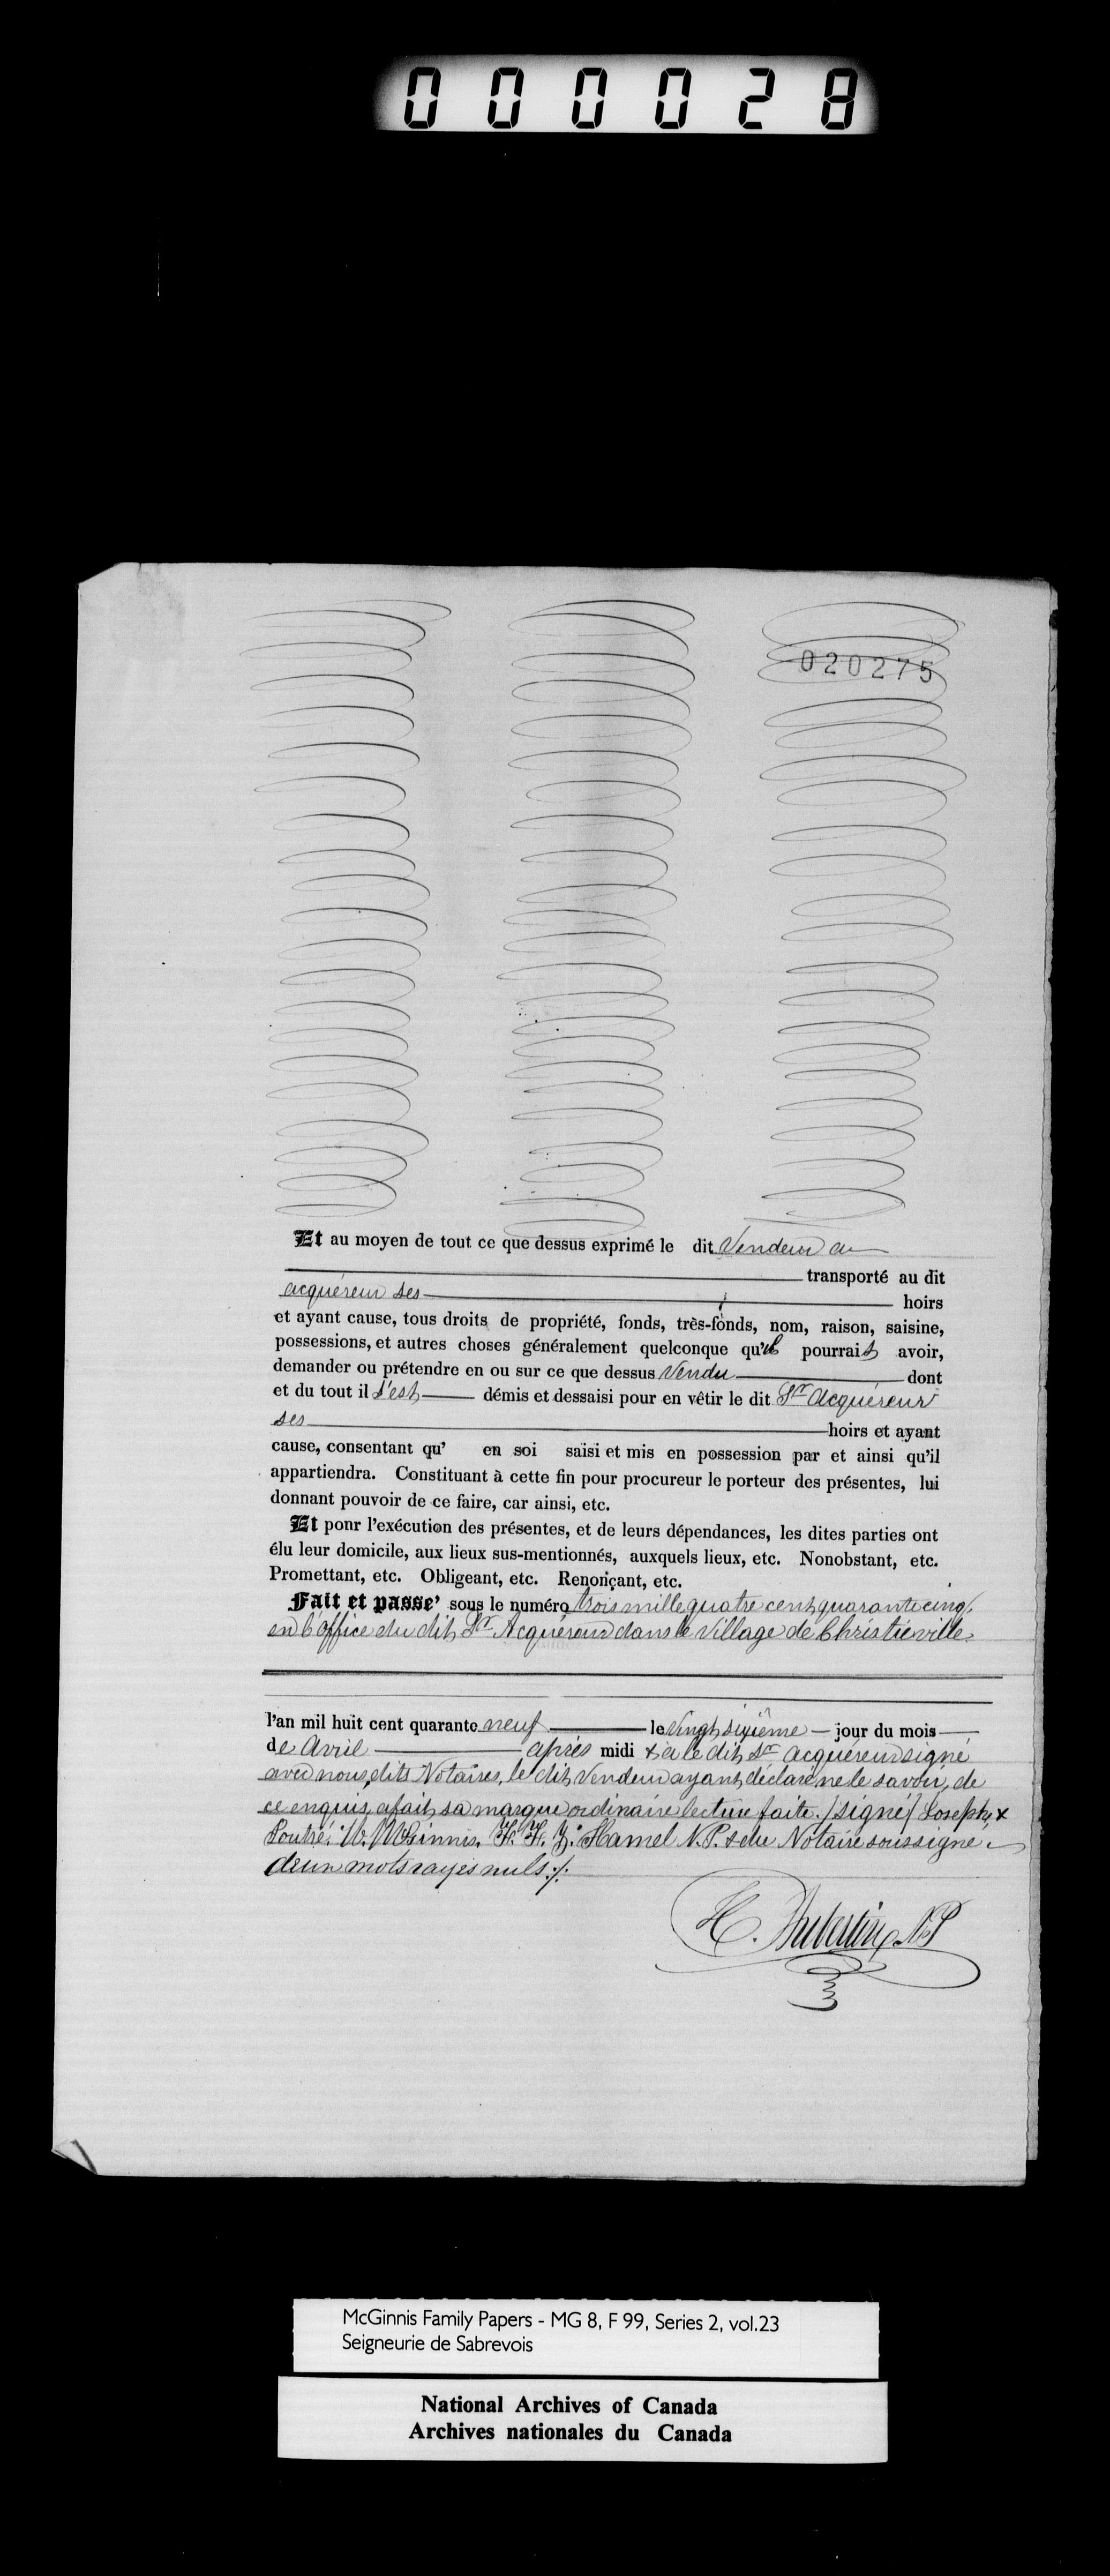 000028
020275
Et au moyen de tout ce que dessus exprimé le dit Vendeur a
transporté au dit
acquéreur ses hoirs
et ayant cause, tous droits de propriété, fonds, très-fonds, nom, raison, saisine,
possessions, et autres choses généralement quelconque qu'il pourrait avoir,
demander ou prétendre en ou sur ce que dessus Vendu dont
et du tout il s'est démis et dessaisi pour en vêtir le dit Sr. Acquéreur
ses hoirs et ayant
cause, consentant qu' en soi saisi et mis en possession par et ainsi qu'il
appartiendra. Constituant à cette fin pour procureur le porteur des présentes, lui
donnant pouvoir de ce faire, car ainsi, etc.
Et ponr l'exécution des présentes, et de leurs dépendances, les dites parties ont
élu leur domicile, aux lieux sus-mentionnés, auxquels lieux, etc. Nonobstant, etc.
Promettant, etc. Obligeant, etc. Renonçant, etc.
Fait et passe' sous le numéro trois mille quatre cent quarante cinq.
en l'office du dit Sr. Acquéreur dans le Village de Christieville
l'an mil huit cent quarante neuf le vingt sixième jour du mois
de Avril après midi & a le dit Sr. acquéreur signé
avec nous dits Notaires, le dit Vendeur ayant déclaré ne le savoir, de
ce enquis a fait sa marque ordinaire lecture faite. /signé/ Joseph x
W. McGinnis. Hamel N.P. & du Notaire soussigné
deux mots rayés nuls ./.
H. Aubertin N.P
McGinnis Family Papers - MG 8, F 99, Series 2, vol.23
Seigneurie de Sabrevois
National Archives of Canada
Archives nationales du Canada